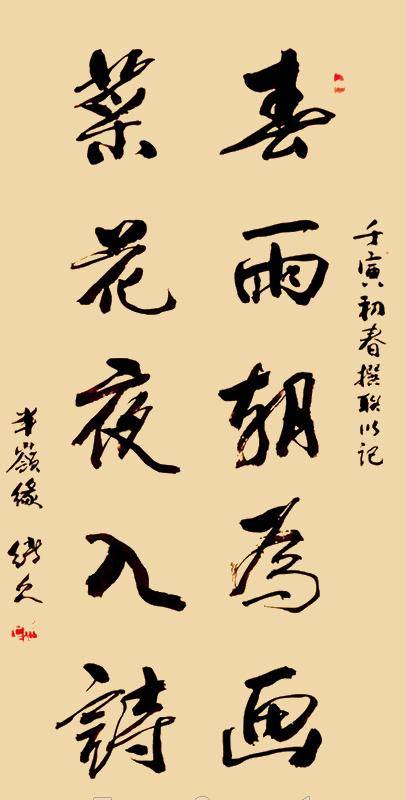 壬寅初春撰聯以記
春雨朝為画
菜花夜入詩
半嶺緣